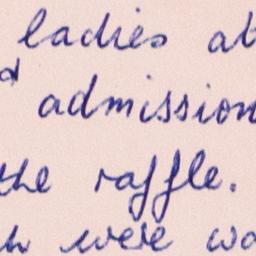 ladies at
admission
the raffle.
were